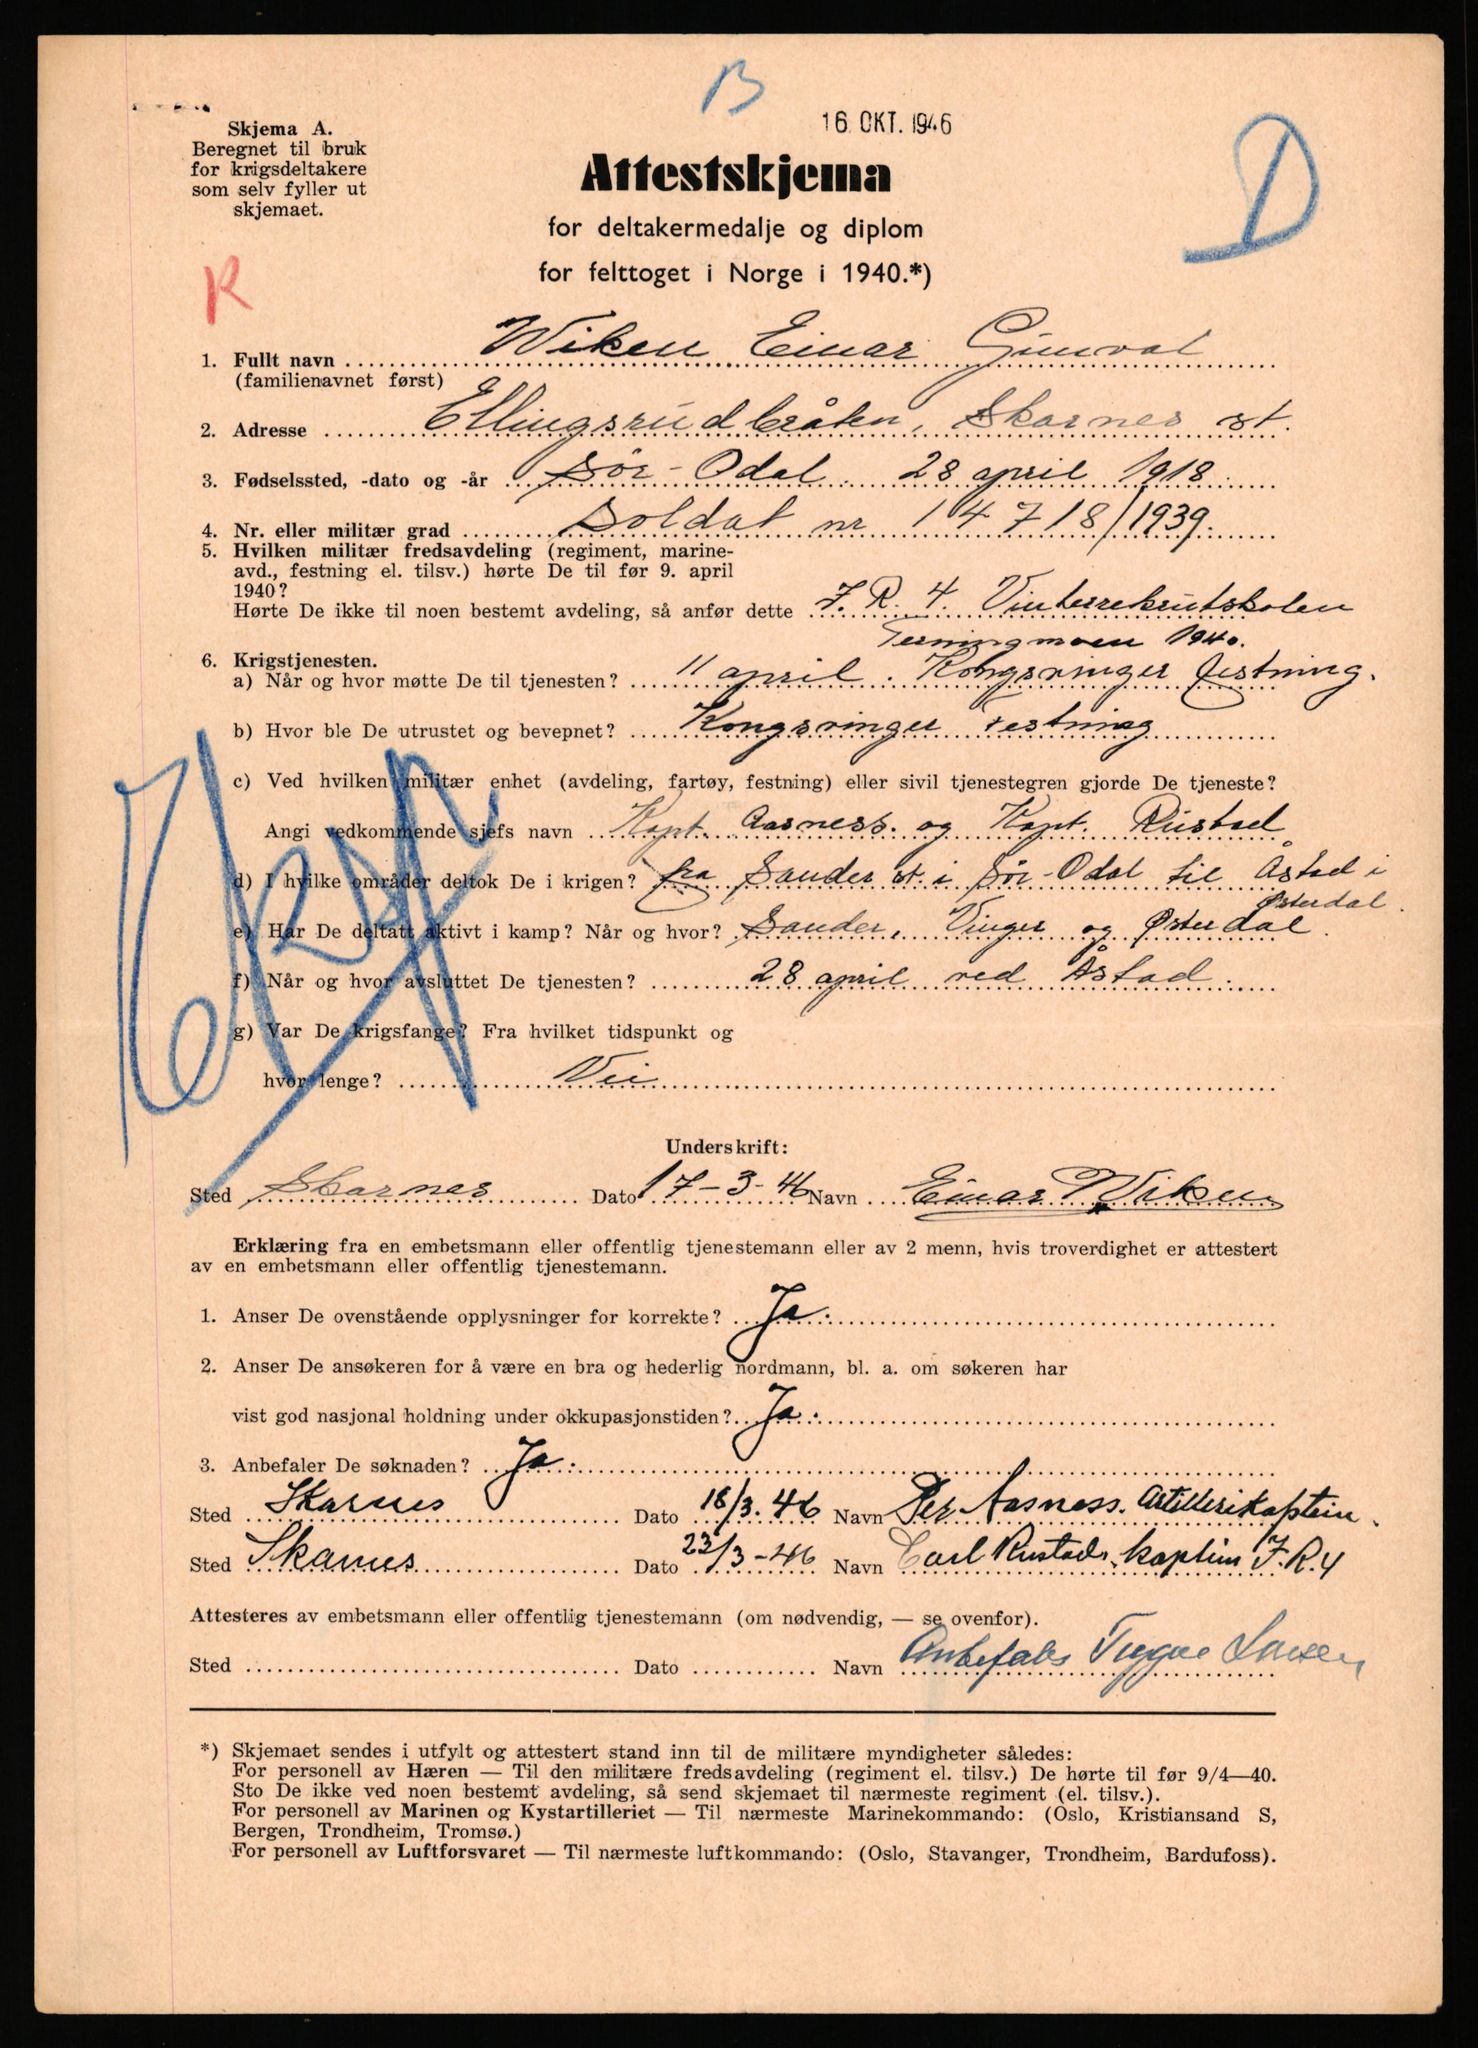 B
16 OKT. 1946
D
Skjema A.
Beregnet til bruk
for krigsdeltakere
som selv fyller ut
skjemaet.
Attestskjema
for deltakermedalje og diplom
for felttoget i Norge i 1940.*)
R
1. Fullt navn Wiken Einar Gunval
(familienavnet først)
2. Adresse Ellingsrudbråten, Skarnes st.
3. Fødselssted, -dato og -år Sør-Odal 28 april 1918
4. Nr. eller militær grad Soldat nr 14718/1939.
5. Hvilken militær fredsavdeling (regiment, marine-
avd., festning el. tilsv.) hørte De til før 9. april
1940?
Hørte De ikke til noen bestemt avdeling, så anfør dette I. R. 4. Vinterrekrutskolen
Terningmoen 1940.
6. Krigstjenesten.
a) Når og hvor møtte De til tjenesten? 11 april. Kongsvinger festning.
b) Hvor ble De utrustet og bevepnet? Kongsvinger Festning
c) Ved hvilken militær enhet (avdeling, fartøy, festning) eller sivil tjenestegren gjorde De tjeneste?
Angi vedkommende sjefs navn Kapt. Aasness. og Kapt. Rustad
d) I hvilke områder deltok De i krigen? fra Sander st. i Sør-Odal til Åstad i
Østerdal.
e) Har De deltatt aktivt i kamp? Når og hvor? Sander, Vinger og Østerdal.
f) Når og hvor avsluttet De tjenesten? 28 april ved Åstad.
g) Var De krigsfange? Fra hvilket tidspunkt og
hvor lenge? Nei
Underskrift:
Sted Skarnes Dato 17-3-46 Navn Einar Wiken
Erklæring fra en embetsmann eller offentlig tjenestemann eller av 2 menn, hvis troverdighet er attestert
av en embetsmann eller offentlig tjenestemann.
1. Anser De ovenstående opplysninger for korrekte? Ja.
2. Anser De ansøkeren for å være en bra og hederlig nordmann, bl. a. om søkeren har
vist god nasjonal holdning under okkupasjonstiden? Ja.
3. Anbefaler De søknaden? Ja.
Sted Skarnes Dato 18/3. 46 Navn Per Aasness. Artillerikaptein.
Sted Skarnes Dato 23/3-46 Navn Carl Rustad, kaptein I.R.4
Attesteres av embetsmann eller offentlig tjenestemann (om nødvendig, — se ovenfor).
Sted Dato Navn Anbefales Trygve Larsen
*) Skjemaet sendes i utfylt og attestert stand inn til de militære myndigheter således:
For personell av Hæren — Til den militære fredsavdeling (regiment el. tilsv.) De hørte til før 9/4—40.
Sto De ikke ved noen bestemt avdeling, så send skjemaet til nærmeste regiment (el. tilsv.).
For personell av Marinen og Kystartilleriet — Til nærmeste Marinekommando: (Oslo, Kristiansand S,
Bergen, Trondheim, Tromsø.)
For personell av Luftforsvaret — Til nærmeste luftkommando: (Oslo, Stavanger, Trondheim, Bardufoss).